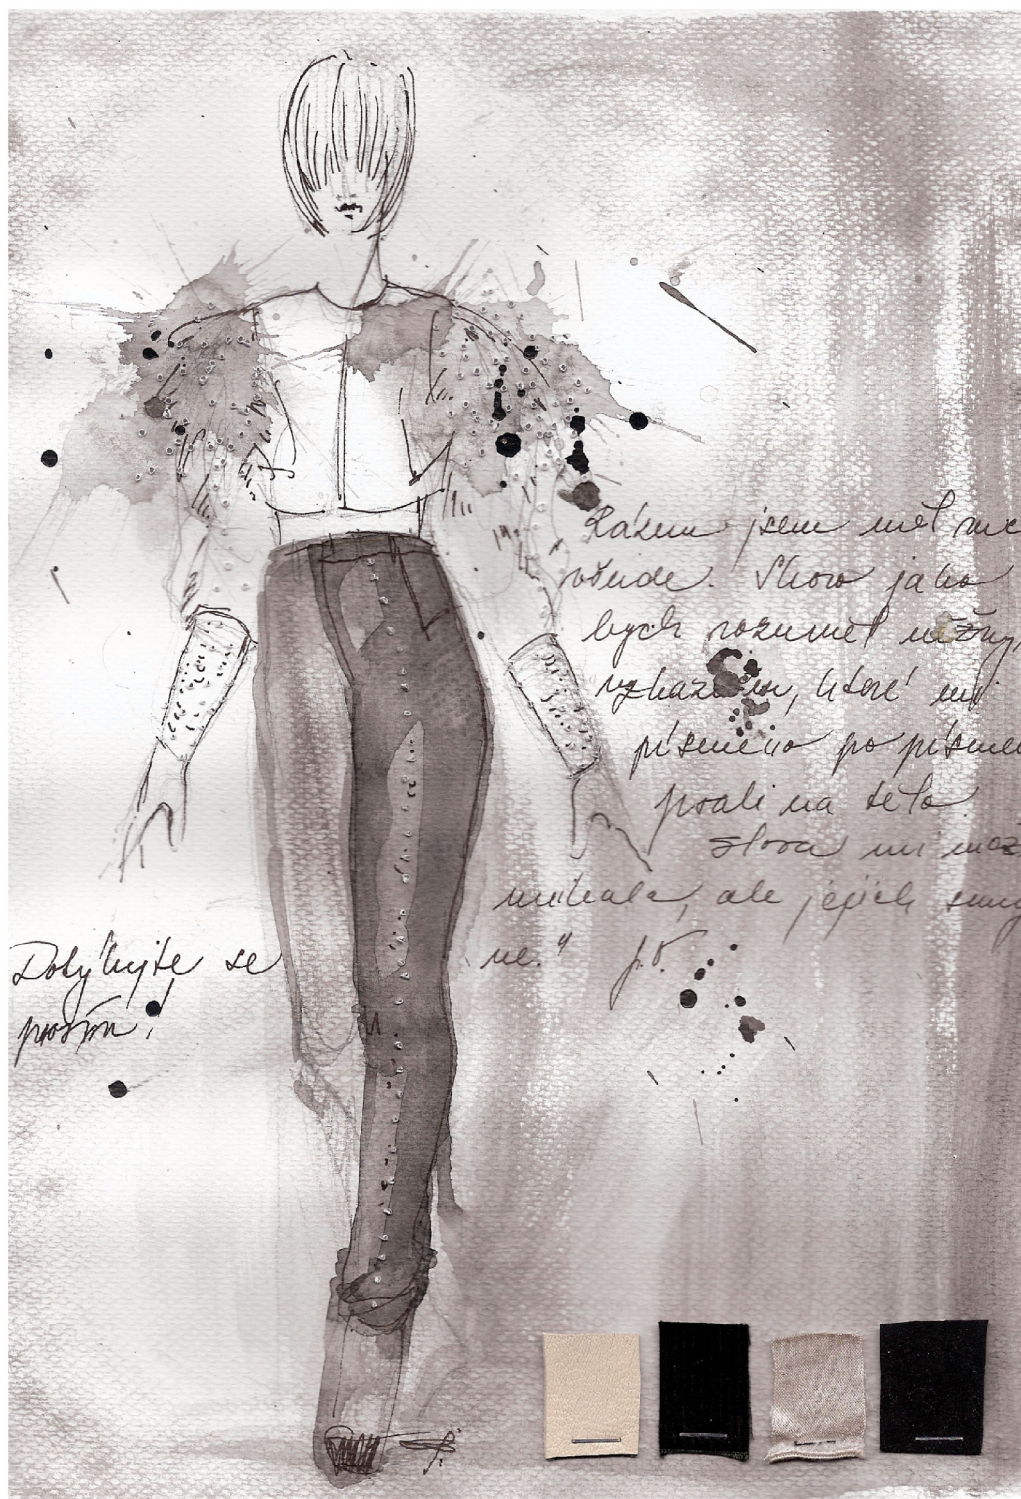 Rázem jsem měl ruce
všude. Skoro jako
bych rozuměl něžným
vzkazům, které mi
písmeno po písmeni
psali na tělo
slova mi mezi
unikala, ale jejich smysl
ne." J.K.
Dotýkejte se
prosím!